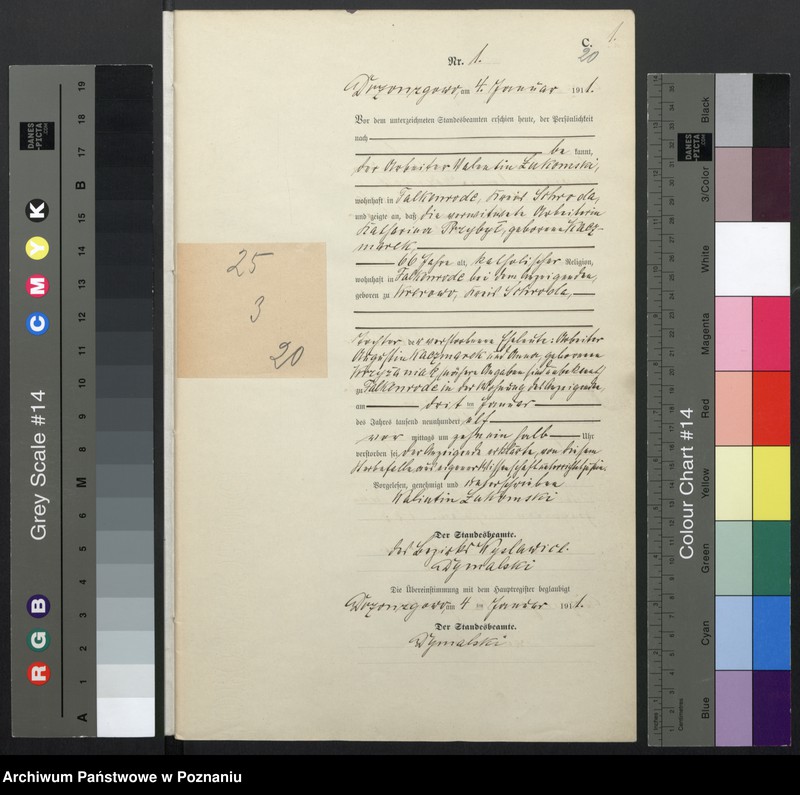 1.
C.
20
Nr. 1.
am 4. Januar 1911.
Vor dem unterzeichneten Standesbeamten erschien heute, der Persönlichkeit
nach
be kannt,
der Arbeiter Valentin Lukomski,
wohnhaft in Falkenrode, Kreis Schroda,
und zeigte an, daß die verwitwete Arbeiterin
Katharina Przybył, geborene Kacz-
marek,
66 Jahre alt, katholischer Religion,
wohnhaft in Falkenrode bei dem Anzeigenden,
geboren zu Kreis Schroda,
Tochter der verstorbenen Eheleute Arbeiter
Augustin Kaczmarek und Anna, geborenen
nähere Angaben sind unbekannt
zu Falkenrode in der Wohnung des Anzeigenden
am drit ten Januar
des Jahres tausend neunhundert elf
vor mittags um zehn ein halb Uhr
verstorben sei, der Anzeigende erklärte, von diesem
Sterbefalle aus eigener Wissenschaft unterrichtet zu sein.
Vorgelesen, genehmigt und unterschrieben
Valentin Lukomski
Der Standesbeamte.
des Bezirks
Dymalski
Die Übereinstimmung mit dem Hauptregister beglaubigt
am 4 ten Januar 1911.
Der Standesbeamte.
Dymalski
25
3
20
Grey Scale #14
DANES
-PICTA
.COM
R G B
C M Y K
A 1 2 3 4 5 6 M 8 9 10 11 12 13 14 15 B 17 18 19
Colour Chart #14
DANES
-PICTA
.COM
Blue Cyan Green Yellow Red Magenta White 3/Color Black
Inches
Centimetres
Archiwum Państwowe w Poznaniu